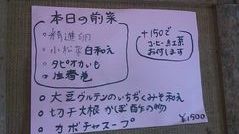 本日の前菜
小松菜白和え
タピオカいも
生春巻
+150で
コーヒー・紅茶
お付けします
大豆グルテンのいちぢくみそ和え
切干大根 かぼ酢の物
カボチャスープ
¥1500